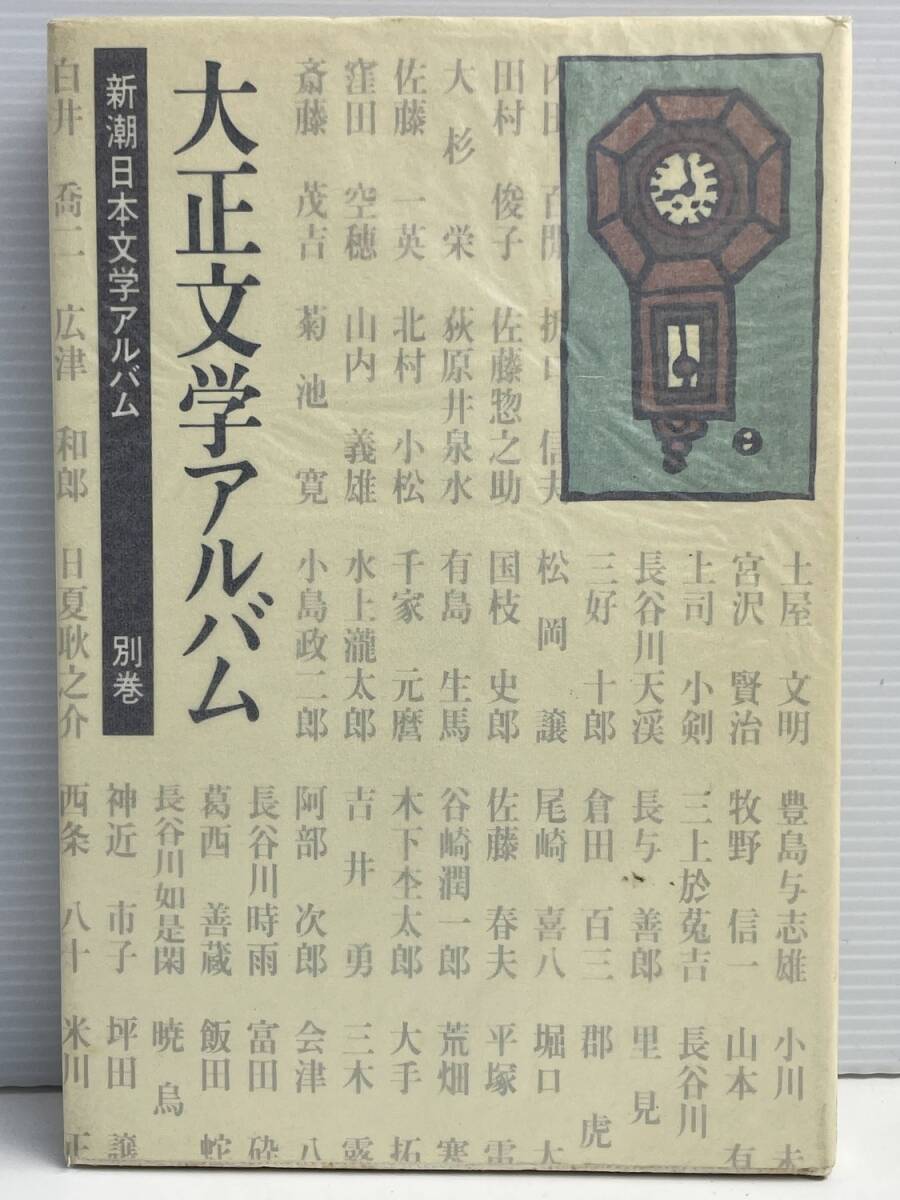 大正文学アルバム
新潮日本文学アルバム 別巻
土屋 文明 豊島与志雄 小川 未
宮沢 賢治 牧野 信一 山本 有
上司 小剣 三上於菟吉 長谷川
長谷川天渓 長与 善郎 里見
三好 十郎 倉田 百三 郡 虎
内田 百閒 折口 信夫 松岡 譲 尾崎 喜八 堀口 大
田村 俊子 佐藤惣之助 国枝 史郎 佐藤 春夫 平塚 雷
大杉 栄 荻原井泉水 有島 生馬 谷崎潤一郎 荒畑 寒
佐藤 一英 北村 小松 千家 元麿 木下杢太郎 大手 拓
窪田 空穂 山内 義雄 水上瀧太郎 吉井 勇 三木 露
斎藤 茂吉 菊池 寛 小島政二郎 阿部 次郎 会津 八
長谷川時雨 富田 砕
葛西 善蔵 飯田 蛇
長谷川如是閑 暁烏
神近 市子 坪田 譲
白井 喬二 広津 和郎 日夏耿之介 西条 八十 米川 正